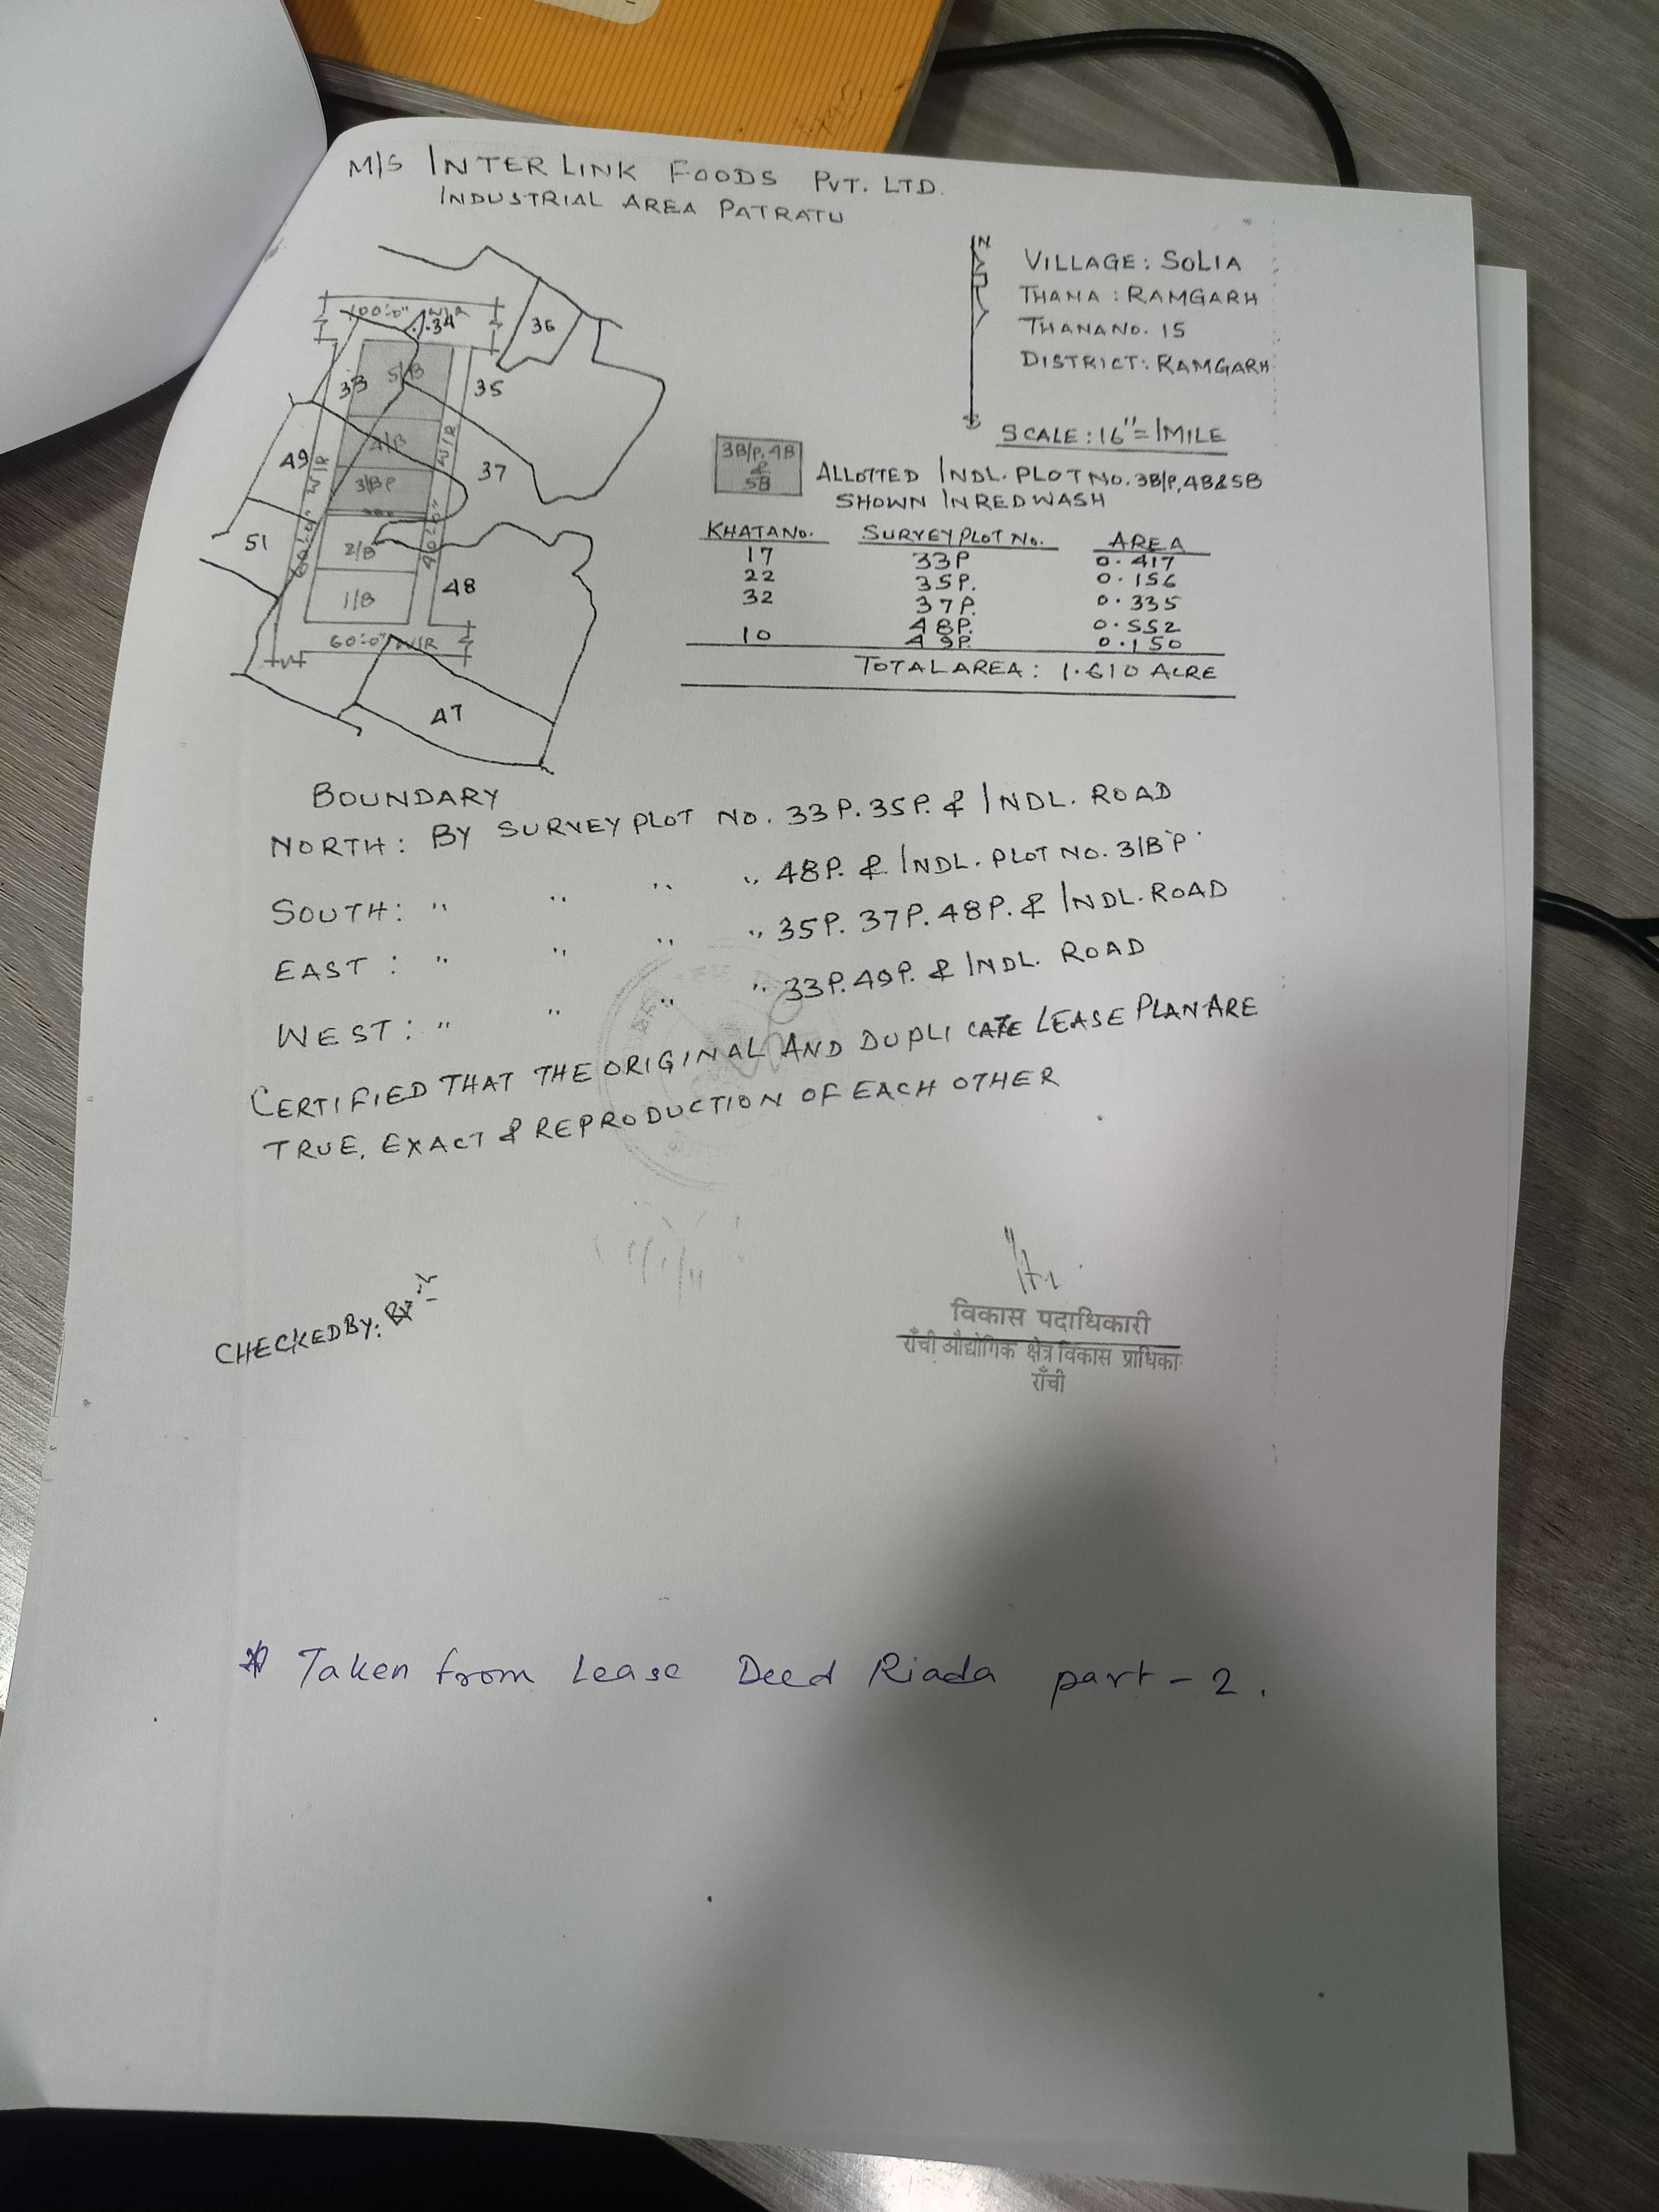 M/S INTER LINK FOODS PVT. LTD.
INDUSTRIAL AREA PATRATU
N
VILLAGE: SOLIA
THANA: RAMGARH
THANA NO. 15
DISTRICT: RAMGARH
SCALE: 16"=1MILE
100'0" W/R
34
36
33
5/B
35
4/B
W/R
49
3/BP
37
60'0" W/R
40'0"
51
2/B
48
1/B
60'0" W/R
47
3B/P, 4B
&
5B
ALLOTTED INDL. PLOT NO. 3B/P, 4B & 5B
SHOWN IN RED WASH
KHATA NO. SURVEY PLOT NO. AREA
17 33P 0.417
22 35P. 0.156
32 37P. 0.335
48P. 0.552
10 49P. 0.150
TOTAL AREA: 1.610 ACRE
BOUNDARY
NORTH: BY SURVEY PLOT NO. 33P. 35P. & INDL. ROAD
SOUTH: " " " " 48P. & INDL. PLOT NO. 3/B'P'
EAST: " " " " 35P. 37P. 48P. & INDL. ROAD
WEST: " " " " 33P. 49P. & INDL. ROAD
CERTIFIED THAT THE ORIGINAL AND DUPLICATE LEASE PLAN ARE
TRUE, EXACT & REPRODUCTION OF EACH OTHER
CHECKED BY:
विकास पदाधिकारी
राँची औद्योगिक क्षेत्र विकास प्राधिका
राँची
Taken from Lease Deed Riada part-2.